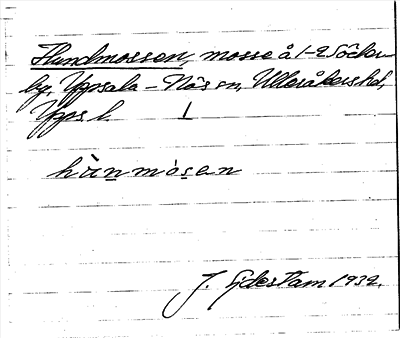 Hundmossen, mosse å 1-2 Söcker-
by, Uppsala-Näs sn, Ulleråkers hd,
Upps l 1
hùnmòsen
J. Sjdestam 1932.